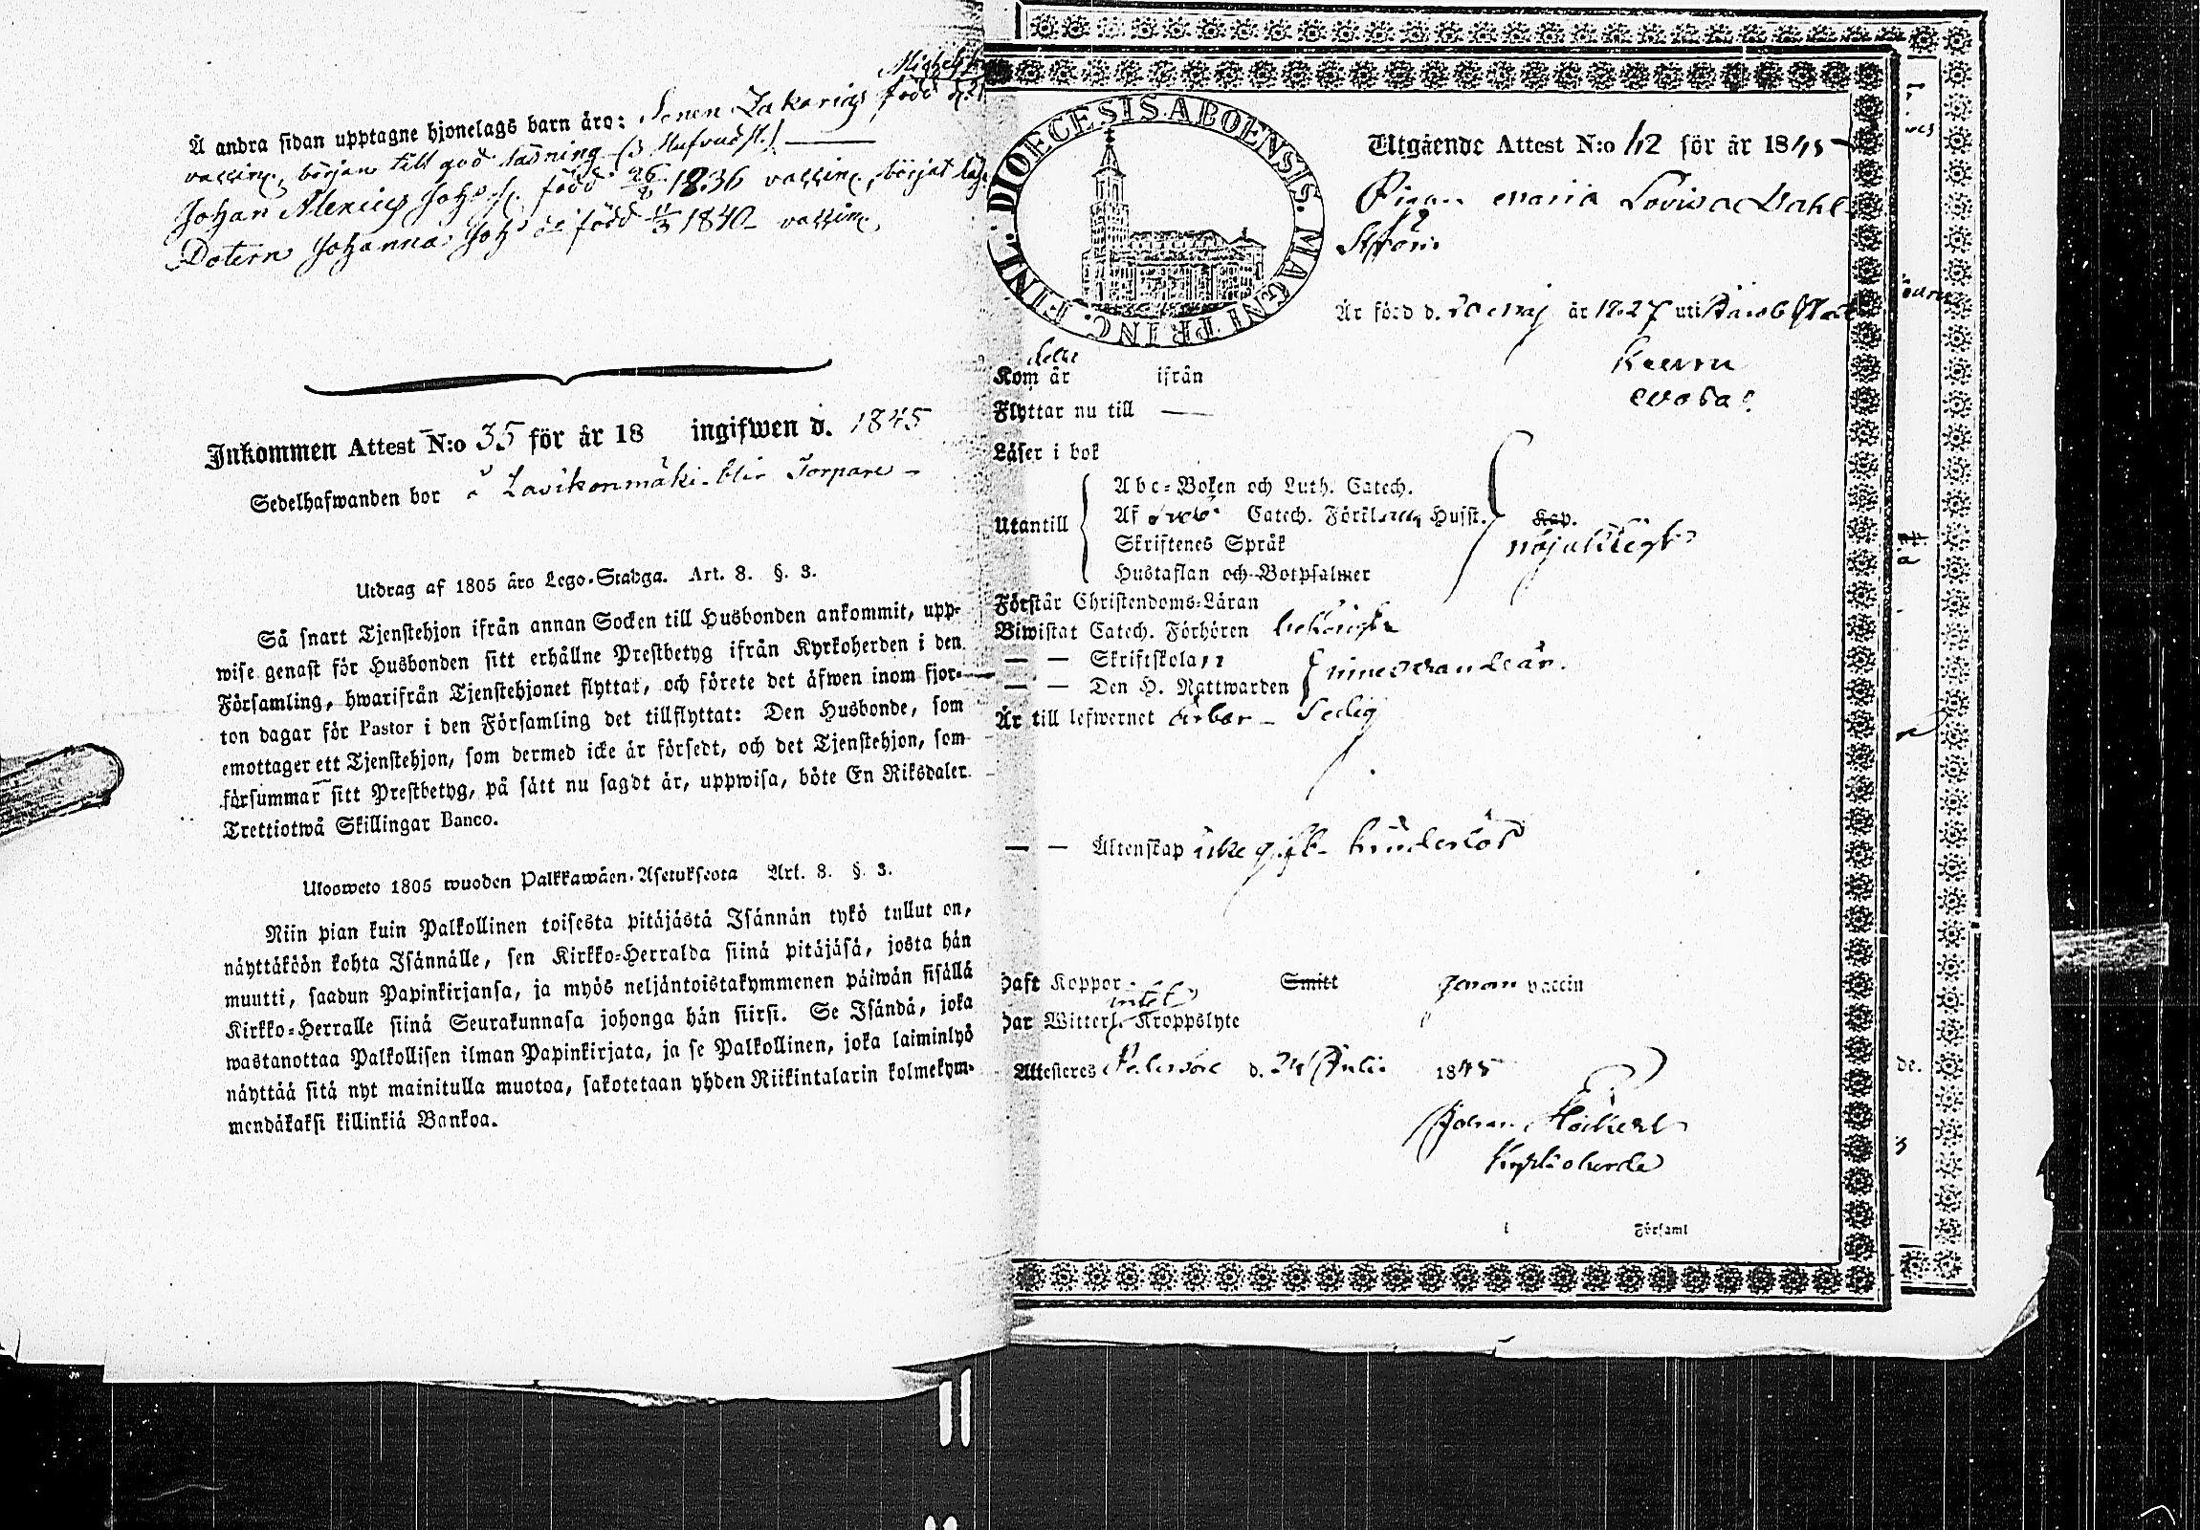 Å andra sidan upptagne hjonelags barn äro: Sonen Zakarias född
vaccin., börjar till god läsning (3 Hufvudst.)
Johan Alexius Johs. född 26/ 1836 vaccin., börjat
Dotern Johanna Johs född 1840 vaccin.
Inkommen Attest N:o 35 för år 18 ingifwen d. 1845
Sedelhafwanden bor å Lavikonmäki blir Torpare
Utdrag af 1805 års Lego-Stadga. Art. 8. §. 3.
Så snart Tjenstehjon ifrån annan Socken till Husbonden ankommit, upp-
wise genast för Husbonden sitt erhållne Prestbetyg ifrån Kyrkoherden i den
Församling, hwarifrån Tjenstehjonet flyttat, och förete det äfwen inom fjor-
ton dagar för Pastor i den Församling det tillflyttat: Den Husbonde, som
emottager ett Tjenstehjon, som dermed icke är försedt, och det Tjenstehjon, som
försummar sitt Prestbetyg, på sätt nu sagdt är, uppwisa, böte En Riksdaler
Trettiotwå Skillingar Banco.
Uloosweto 1805 wuoden Palkkawäen-Asetuksesta Art. 8. §. 3.
Niin pian kuin Palkollinen toisesta pitäjästä Isännän tykö tullut on,
näyttäköön kohta Isännälle, sen Kirkko-Herralda siinä pitäjäsä, josta hän
muutti, saadun Papinkirjansa, ja myös neljäntoistakymmenen päiwän sisällä
Kirkko-Herralle siinä Seurakunnasa johonga hän siirsi. Se Isändä, joka
wastanottaa Palkollisen ilman Papinkirjata, ja se Palkollinen, joka laiminlyö
näyttää sitä nyt mainitulla muotoa, sakotetaan yhden Riikintalarin kolmekym-
mendäkaksi killinkiä Bankoa.
DIOECESIS. ABOENSIS. MAGNI PRINC. FINL.
Utgående Attest N:o 42 för år 1845
Pigan Maria Lovisa Dahl-
ström
Är född d. 20 Maj år 1827 uti Jacobstad
Kom år ifrån
Flyttar nu till —
Läser i bok
Utantill
Abc-Boken och Luth. Catech.
Af Catech. Förkl. Husst. Kap.
Skriftenes Språk
nöjaktigt
Hustaflan och Botpsalmer
Förstår Christendoms-Läran
Biwistat Catech. Förhören behörigen
— — Skriftskolan
— — Den H. Nattwarden
Är till lefwernet ärbar - Sedig
— — Äktenskap icke gift - hinderlös
Haft Koppor Smitt genom vaccin
intet
Har Witterl. Kroppslyte
Attesteres Pedersöre d. 24 Juli 1845
Johan
Kyrkoherde
i Församl